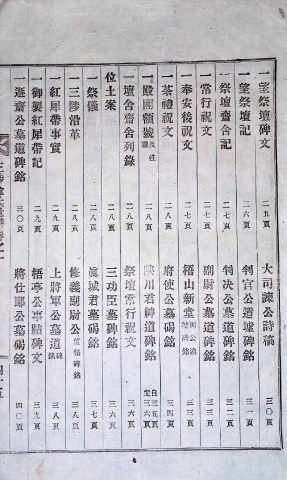 望祭壇碑文 二五頁
一望祭壇記 二六頁
一祭壇齋舍記 二七頁
一常行祝文 二七頁
一奉安後祝文 二七頁
一茶禮祝文 二八頁
一殿閣額號 二八頁
一壇舍齋舍列錄
位土案 二八頁
一祭儀 二八頁
一三陟沿革 二八頁
一紅犀帶事實 二九頁
一御製紅犀帶記 二九頁
一遯齋公墓道碑銘 三〇頁
大司諫公詩稿 三〇頁
判官公遺墟碑銘 三一頁
判決公墓碣銘 三二頁
副尉公墓道碑銘 三三頁
梧山新堂
府使公墓碣銘 三四頁
陜川君神道碑銘 自三五頁至三六頁
祭壇常行祝文 三六頁
三功臣墓碑銘 三六頁
眞城君墓碣銘 三七頁
修義副尉公 三八頁
上將軍公墓道碑銘 三八頁
梧亭公事蹟碑文 三九頁
將仕郞公墓碣銘 四〇頁